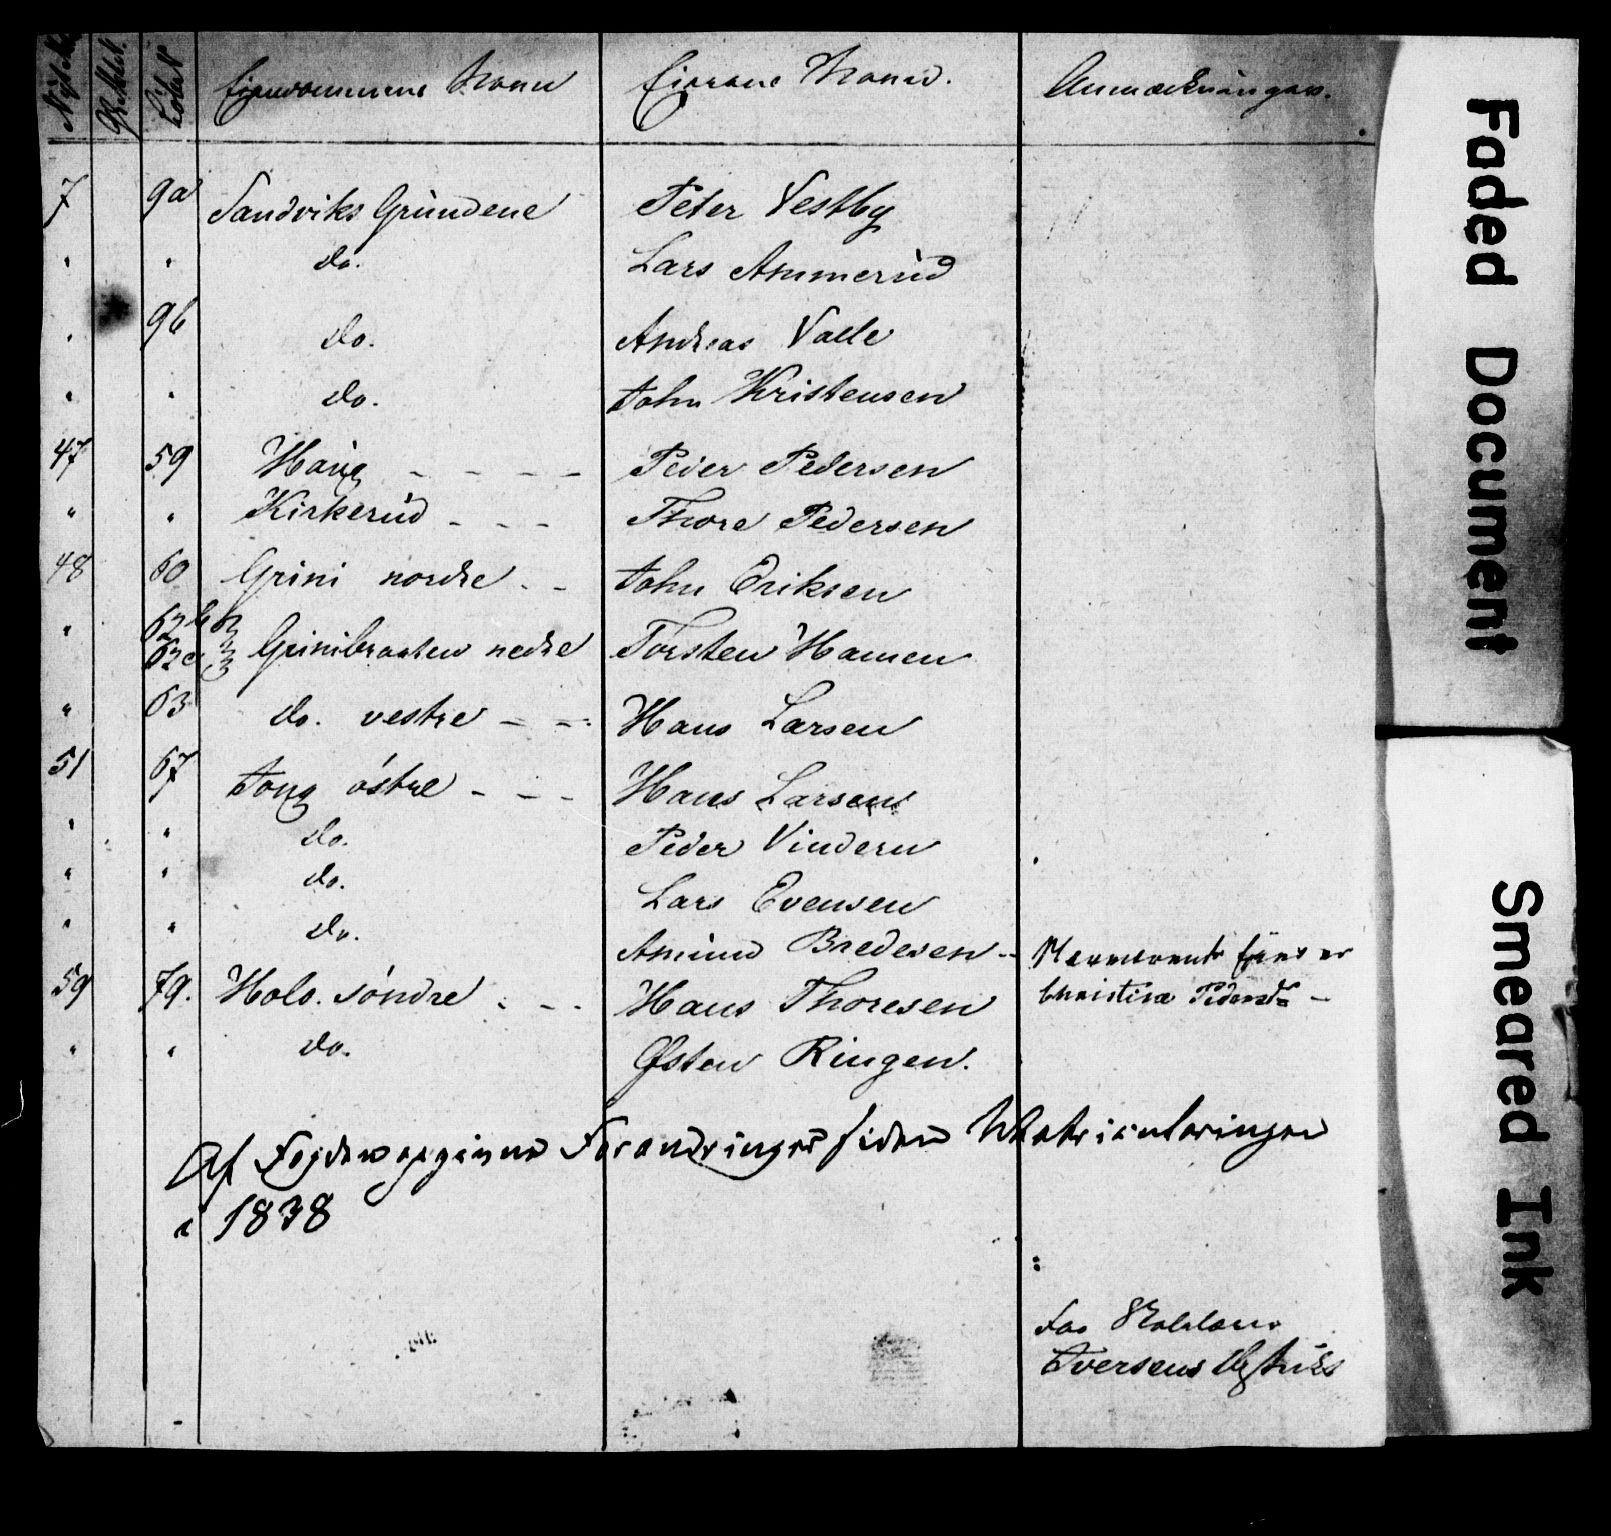 Eiendommene Navn Eierens Navn. Anmærkninger.
7 9a Sandviks Gründene Peter Vestby
" " do. Lars Ammerüd
" 9b do. Andreas Valle
" " do. John Kristensen
47 59 Haüg - - - - Peder Pedersen
" " Kirkerüd - - - Thore Pedersen
48 60 Grini nordre - - John Eriksen
" 62b
62c Grinibraaten nedre Torsten Hansen
" 63 do. vestre - - Hans Larsen
51 67 Jong östre - - - Hans Larsen
" " do. Peder Vindern
" " do. Lars Evensen
" " do. Amünd Bredesen --
59 79. Holo. söndre - - - Hans Thoresen Christine Pedersdr -
" " do. Østen Ringen.
Af Forandringer siden Matriculeringen
i 1838
Iversens
Faded Document
Smeared Ink